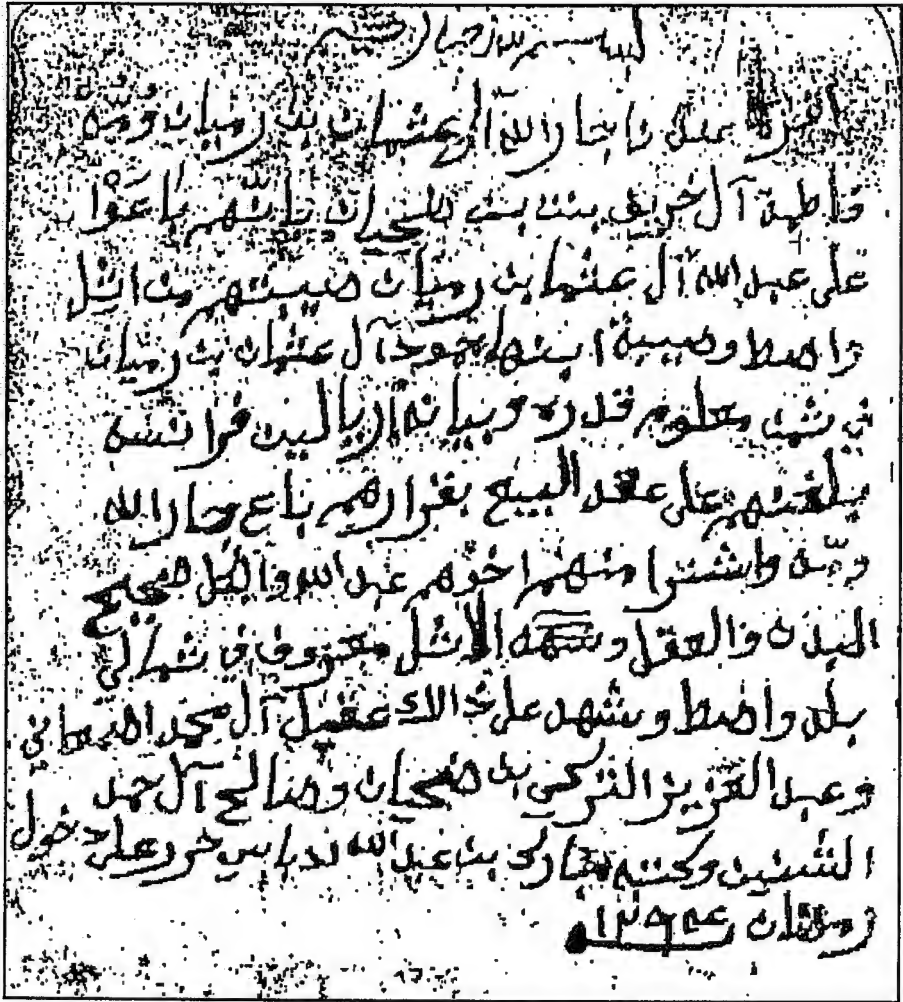 بسم الله الرحمن الرحيم
اقر عندنا جار الله آل عثمان بن رميان وميه
فاطمة آل خريف بنت بن ضحيان بانهم باعوا
على عبد الله آل عثمان بن رميان صيبتهم من اثل
واضط وصيبة ابنتها حمود آل عثمان بن رميان
في ثمن معلوم قدره وبيانه آريالين فرانسه
بلغتهم على عقد البيع بقرارهم باع جار الله
وميه واشترا منهم اخوهم عبد الله والكل صحيح
البدن والعقل وسهمه الاثل معروف في شمالي
بلد واضط وشهد على ذالك عقيل آل محمد
وعبد العزيز التركي بن ضحيان وصالح آل حمد
الشتيت وكتبه مبارك بن عبد الله لدباسي حرر على دخول
رمضان